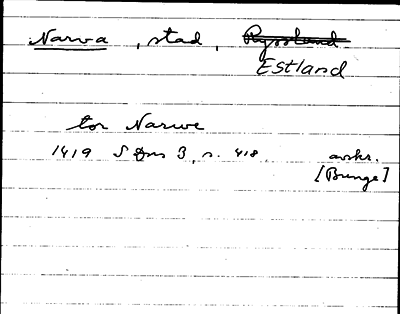 Narva, stad, Ryssland
Estland
tor Narwe
1419 SDns 3, s. 418. avskr.
[Bunge]